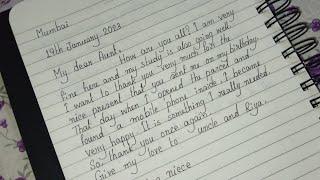 Mumbai
19th January 2023
My dear Aunt,
How are you all? I am very
fine here and my study is also going well.
I want to thank you very much for the
nice present that you sent me on my birthday.
That day when I opened the parcel and
found a mobile phone inside, I became
very happy. It is something I really needed.
So thank you once again.
Give my love to uncle and Riya.
niece